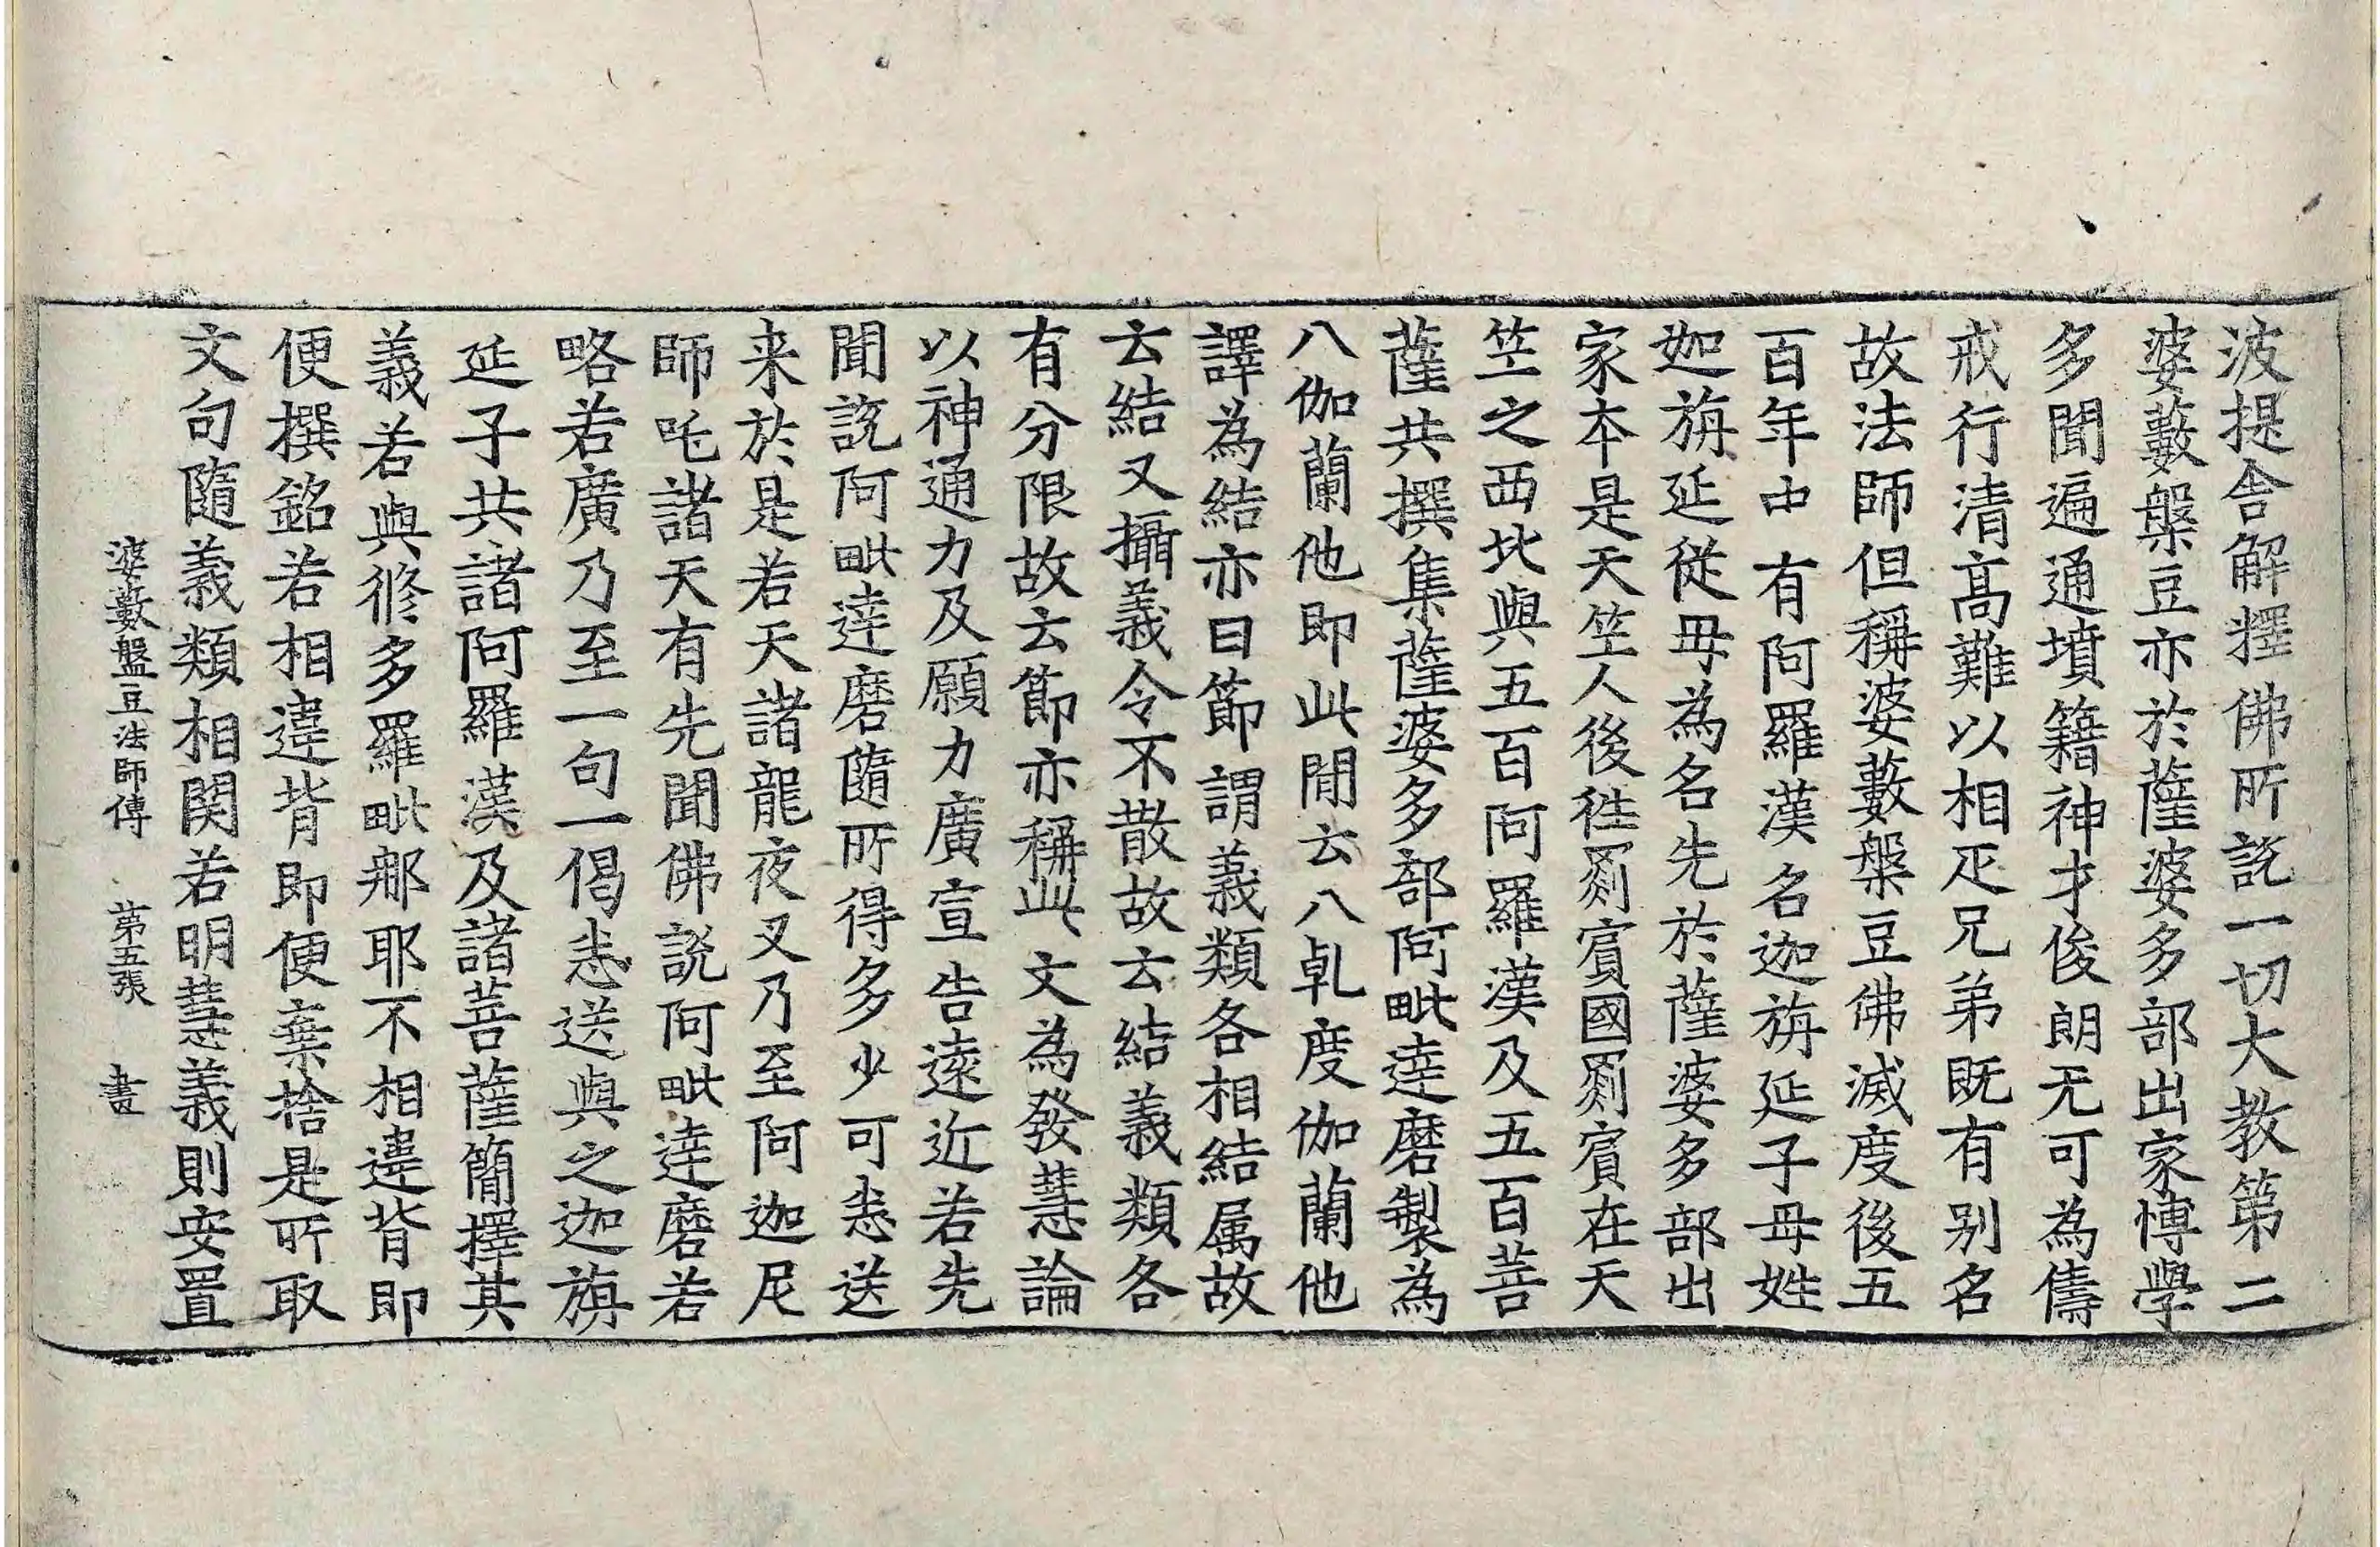 波提舍解擇佛所説一切大教第二
婆藪槃豆亦於薩婆多部出家博學
多聞遍通墳籍神才俊朗无可為儔
戒行清髙難以相疋兄弟既有别名
故法師但稱婆藪槃豆佛滅度後五
百年中有阿羅漢名迦旃延子母姓
迦旃延從母為名先於薩婆多部出
家本是天竺人後徃罽賔國罽賔在天
竺之西北與五百阿羅漢及五百菩
薩共撰集薩婆多部阿毗達磨製為
八伽蘭他即此間云八乹度伽蘭他
譯為結亦曰節謂義類各相結属故
云結又攝義令不散故云結義類各
有分限故云節亦稱此文為發慧論
以神通力及願力廣宣告遠近若先
聞説阿毗達磨隨所得多少可悉送
来於是若天諸龍夜叉乃至阿迦尼
師吒諸天有先聞佛説阿毗達磨若
略若廣乃至一句一偈悉送與之迦旃
延子共諸阿羅漢及諸菩薩簡擇其
義若與修多羅毗那耶不相違背即
便撰銘若相違背即便棄捨是所取
文句隨義類相関若明慧義則安置
婆藪盤豆法師傳 第五張 書